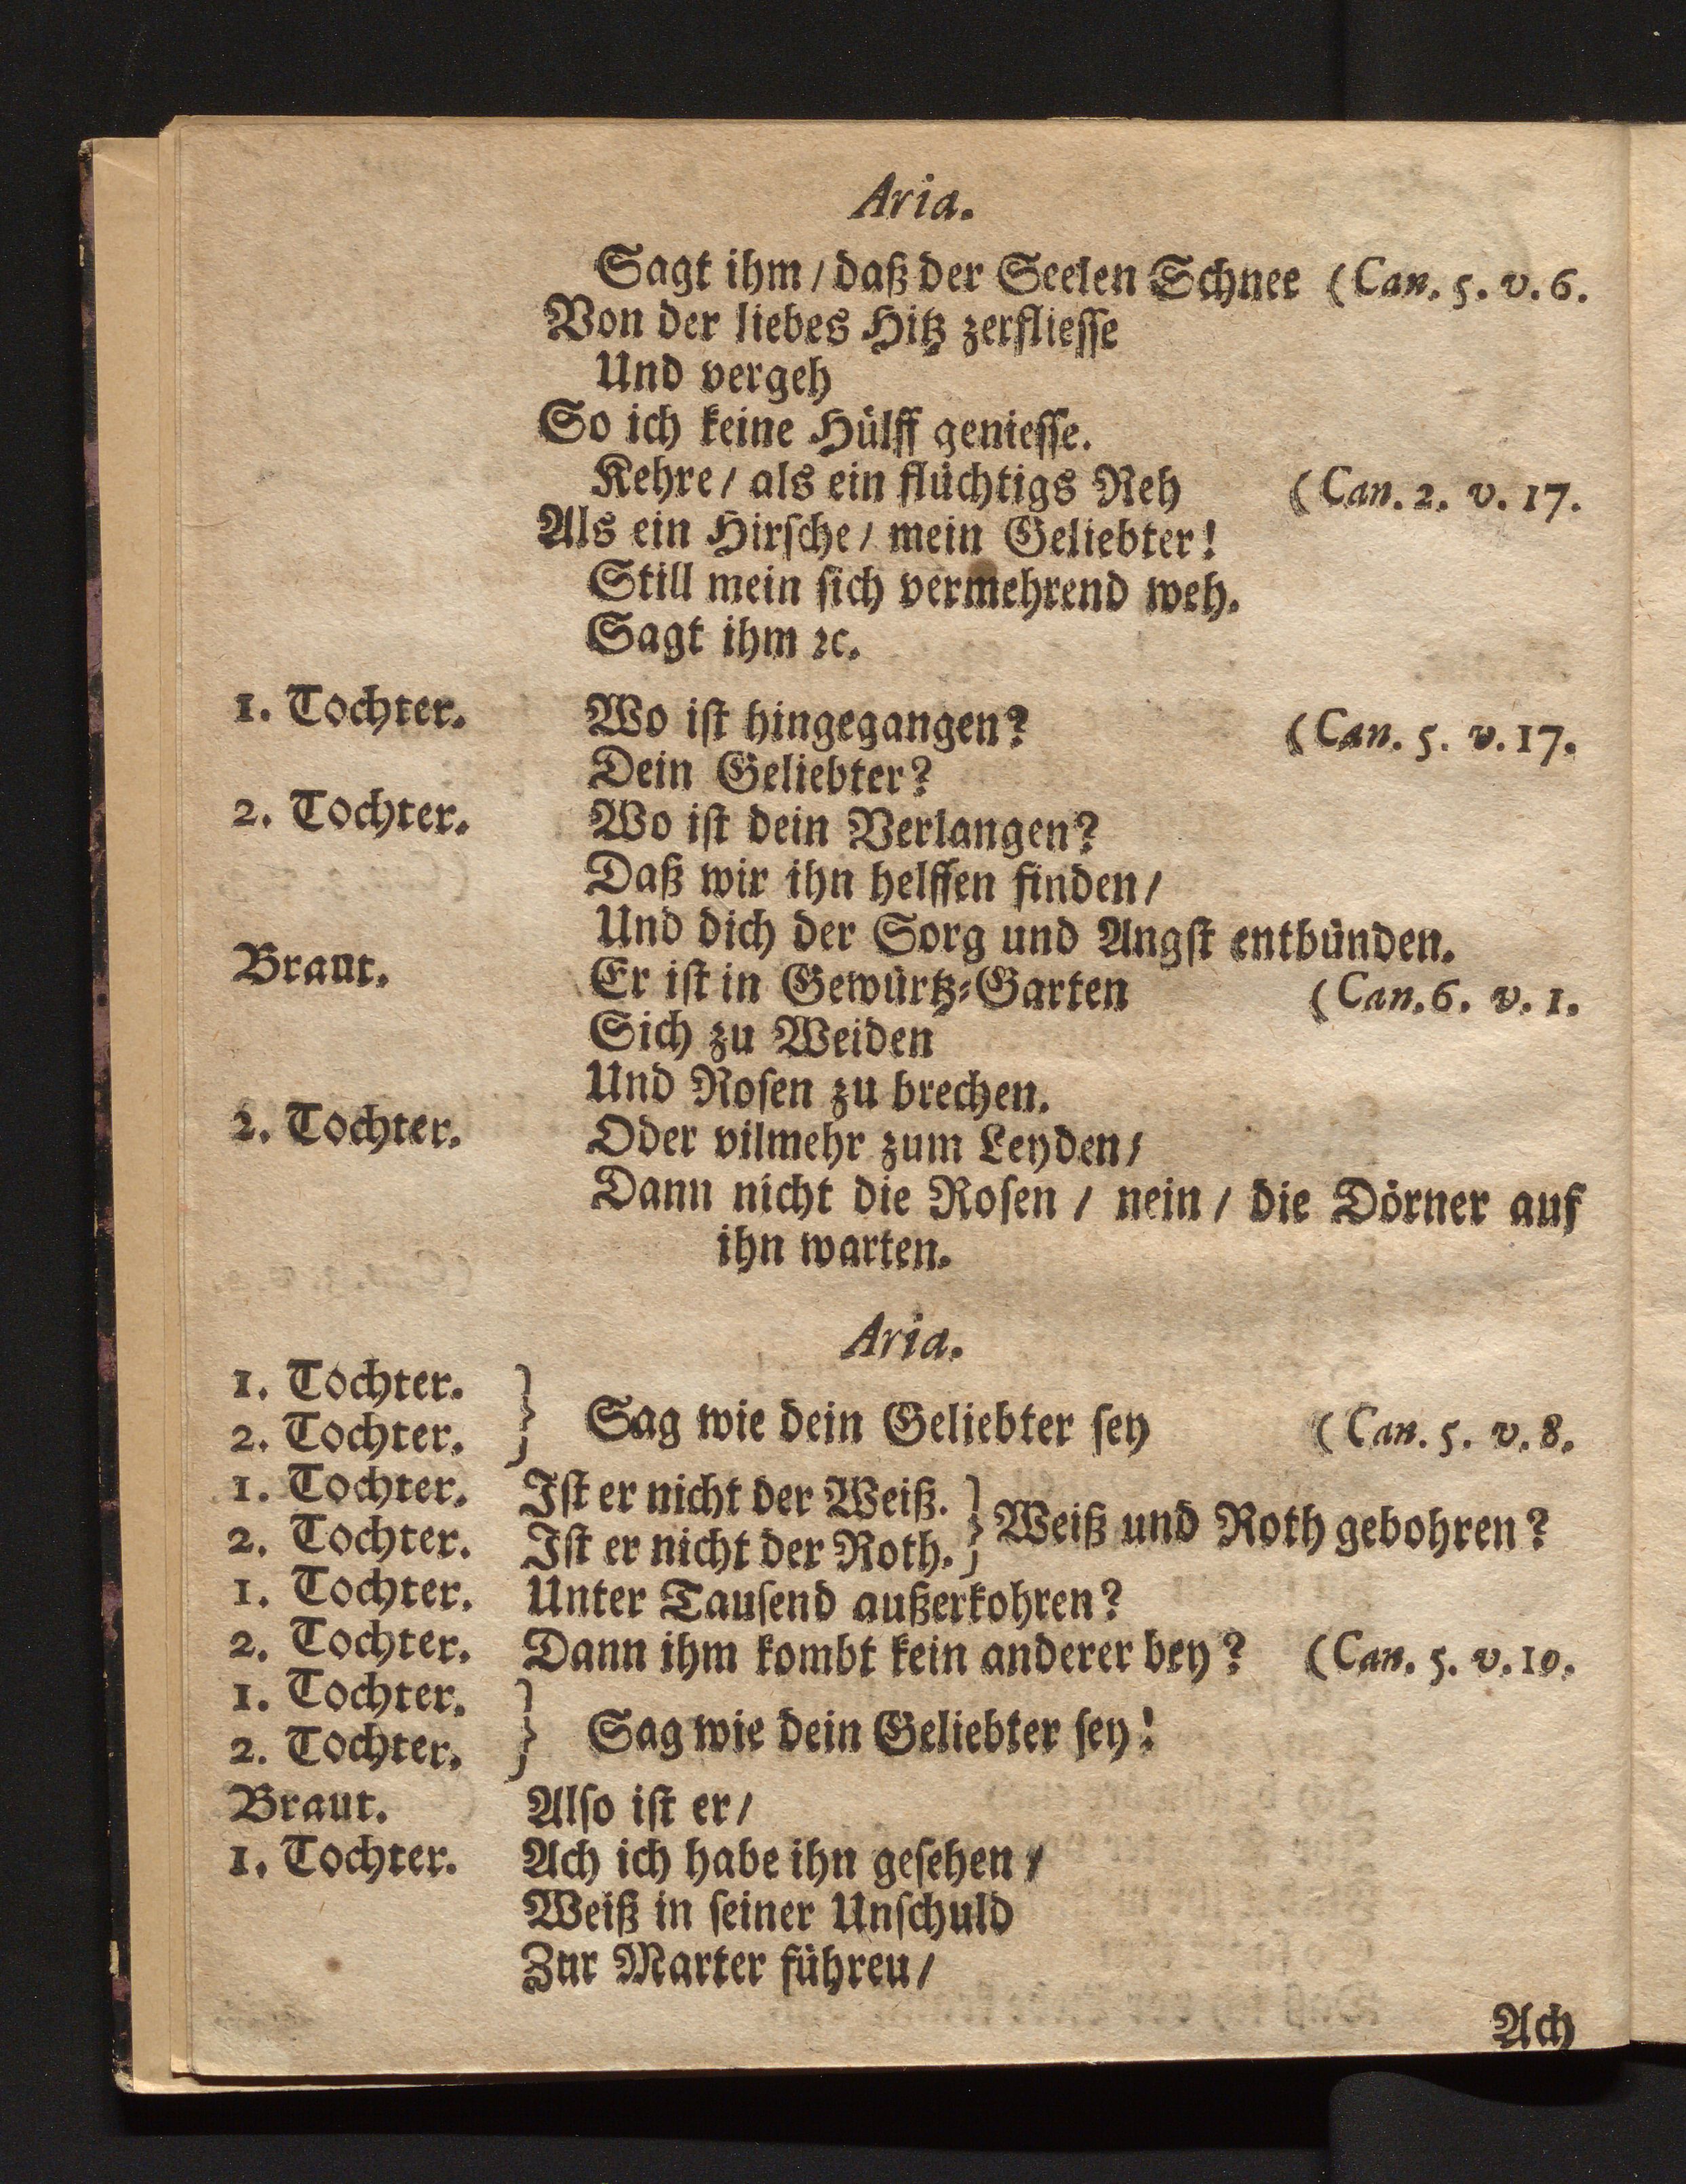 Aria.
Sagt ihm / daß der Seelen Schnee (Can. 5. v. 6.
Von der liebes Hitz zerfliesse
Und vergeh
So ich keine Hülff geniesse.
Kehre / als ein flüchtigs Reh (Can. 2. v. 17.
Als ein Hirsche / mein Geliebter!
Still mein sich vermehrend weh.
Sagt ihm ꝛc.
1. Tochter. Wo ist hingegangen? (Can. 5. v. 17.
Dein Geliebter?
2. Tochter. Wo ist dein Verlangen?
Daß wir ihn helffen finden /
Und dich der Sorg und Angst entbünden.
Braut. Er ist in Gewürtz-Garten (Can. 6. v. 1.
Sich zu Weiden
Und Rosen zu brechen.
2. Tochter. Oder vilmehr zum Leyden /
Dann nicht die Rosen / nein / die Dörner auf
ihn warten.
Aria.
1. Tochter.
2. Tochter. } Sag wie dein Geliebter sey (Can. 5. v. 8.
1. Tochter. Ist er nicht der Weiß.
2. Tochter. Ist er nicht der Roth. } Weiß und Roth gebohren?
1. Tochter. Unter Tausend außerkohren?
2. Tochter. Dann ihm kombt kein anderer bey? (Can. 5. v. 10.
1. Tochter.
2. Tochter. } Sag wie dein Geliebter sey!
Braut. Also ist er /
1. Tochter. Ach ich habe ihn gesehen /
Weiß in seiner Unschuld
Zur Marter führeu /
Ach